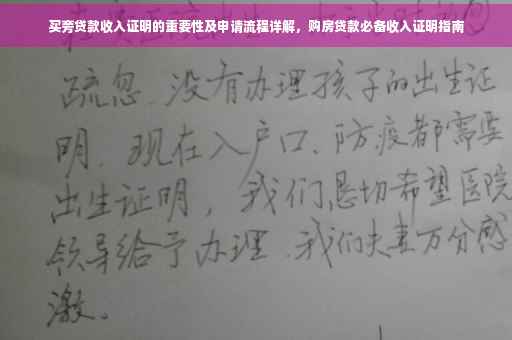 买旁贷款收入证明的重要性及申请流程详解，购房贷款必备收入证明指南
疏忽、没有办理孩子的出生证
明、现在入户口、防疫都需要
出生证明，我们恳切希望医院
领导给予办理、我们夫妻万分感
激。